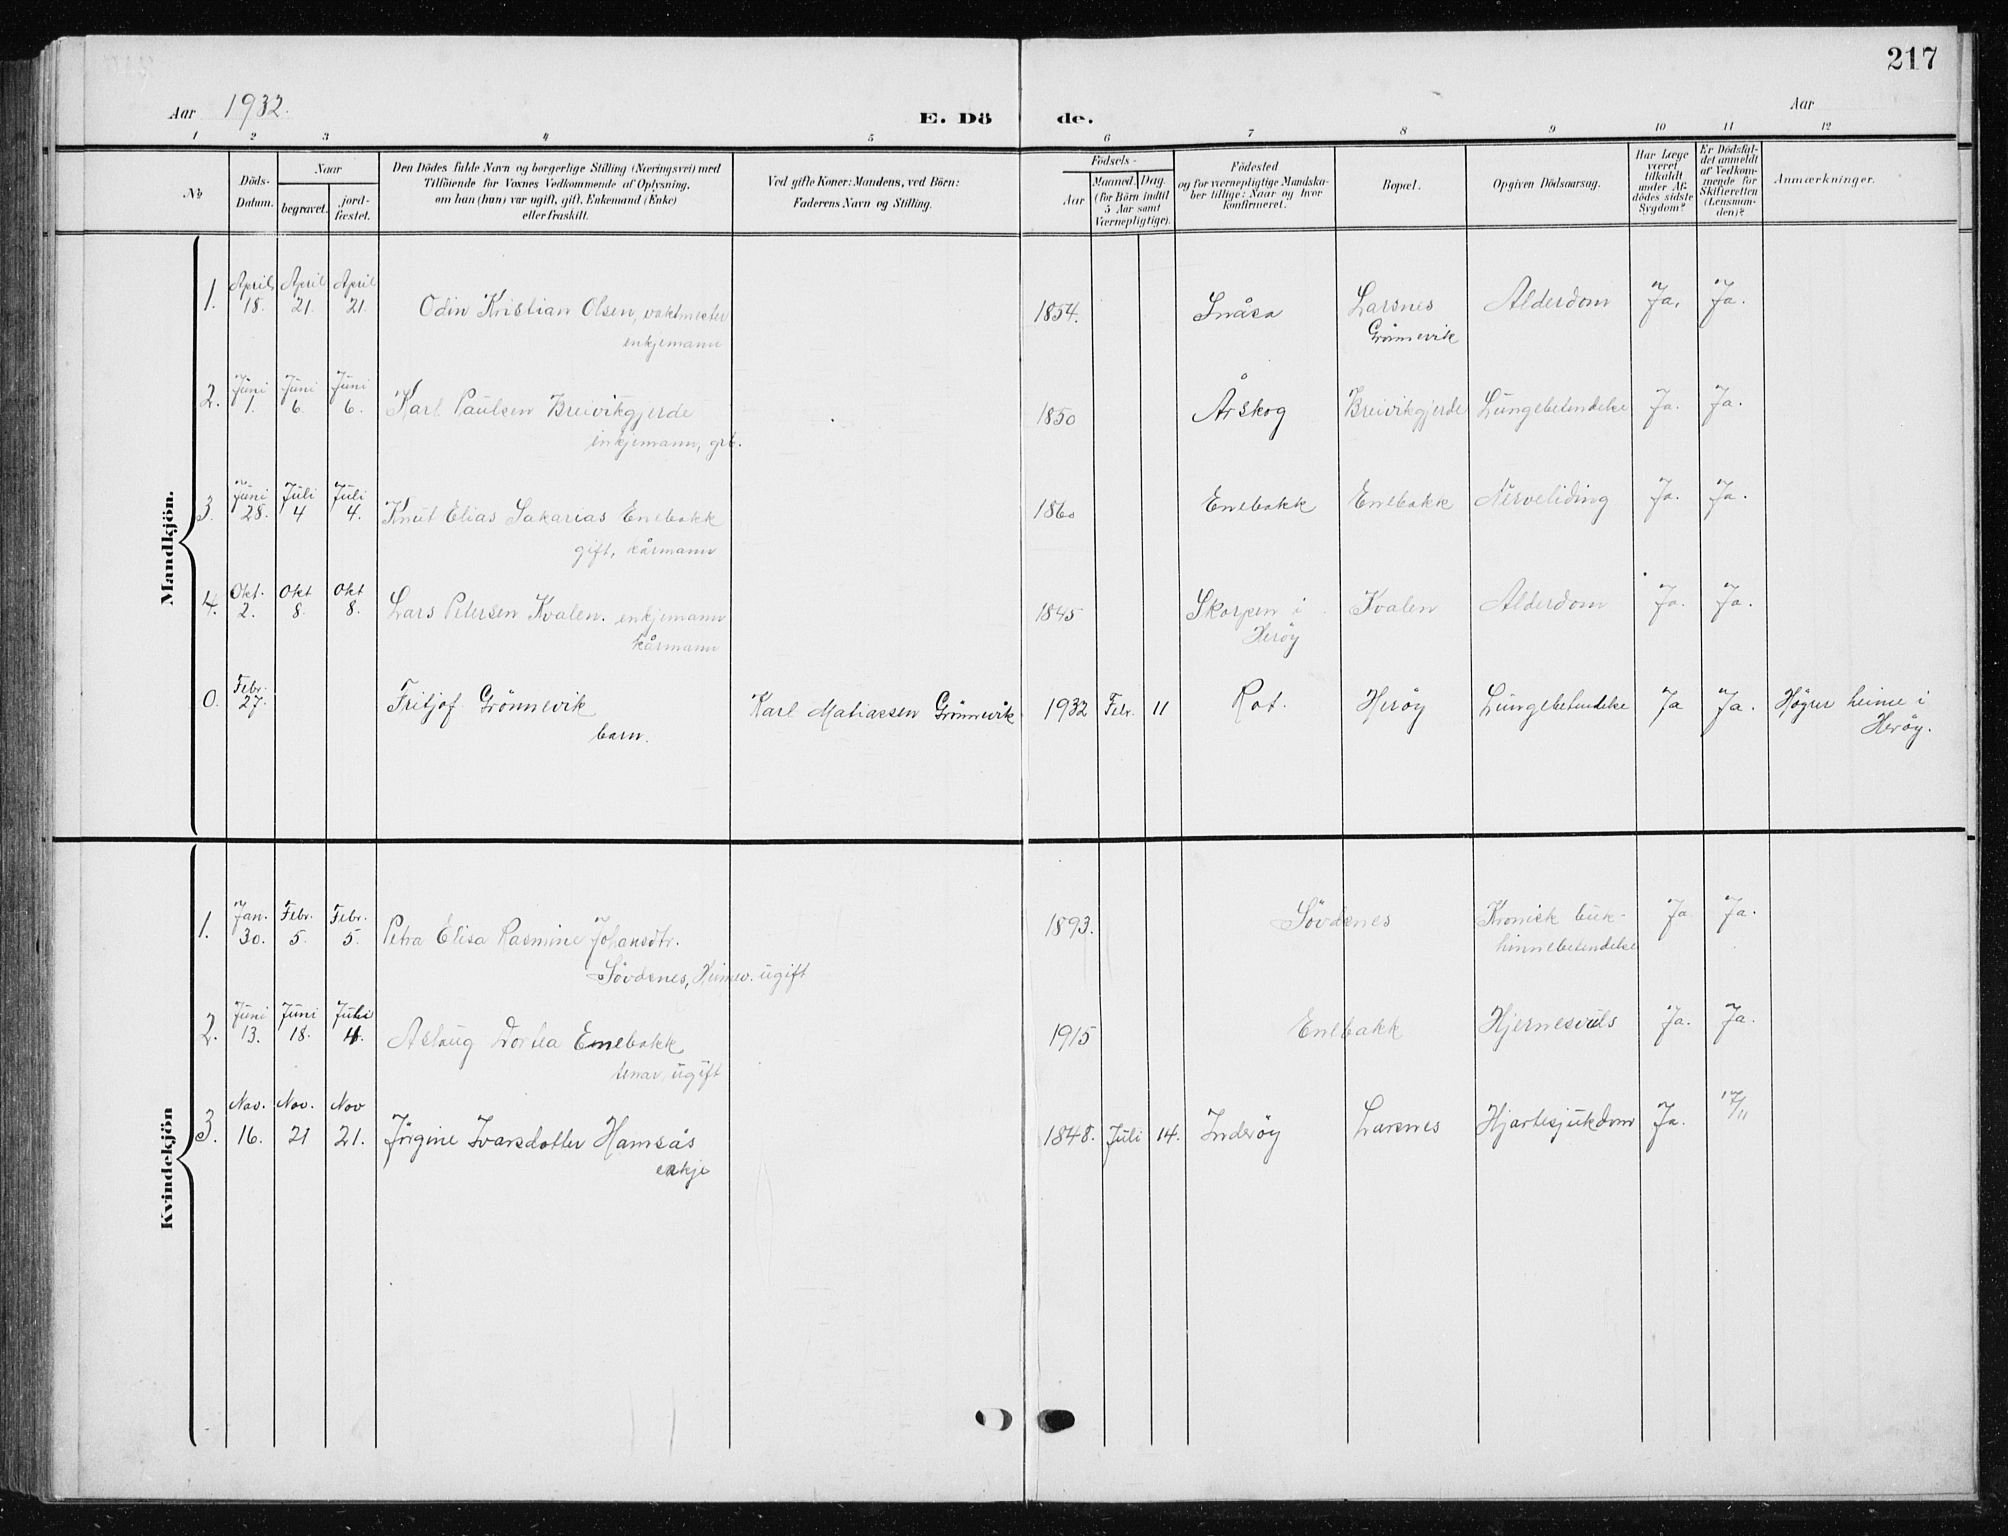 217
Aar 1932.
E. Döde.
Aar
1 2 3 4 5 6 7 8 9 10 11 12
No
Döds-Datum.
Naar
begravet.
jord-fæstet.
Den Dödes fulde Navn og borgerlige Stilling (Næringsvei) med
Tilföiende for Voxnes Vedkommende af Oplysning,
om han (hun) var ugift, gift, Enkemand (Enke)
eller fraskilt.
Ved gifte Koner: Mandens, ved Börn:
Faderens Navn og Stilling.
Födsels-
Aar
Maaned. Dag.
(for Börn indtil
5 Aar samt
Værnepligtige).
Födested
og for værnepligtige Mandska-
ber tillige: Naar og hvor
konfirmeret.
Bopæl.
Opgiven Dödsaarsag.
Har Læge
været
tilkaldt
under Af-
dödes sidste
Sygdom?
Er Dödsfal-
det anmeldt
af Vedkom-
mende for
Skifteretten
(Lensman-
den)?
Anmærkninger.
Mandkjön.
1. April 18. April 21. April 21. Odin Kristian Olsen, vaktmester 1854. Snåsa Larsnes Alderdom Ja. Ja.
enkjemann Grönnevik
2. Juni 1. Juni 6. Juni 6. Karl Paulsen Breivikgjerde 1850 Årskog Breivikgjerde Lungebetendelse Ja. Ja.
enkjemann, grb.
3. Juni 28. Juli 4 Juli 4. Knut Elias Sakarias Enebakk 1860 Enebakk Enebakk Nerveliding Ja. Ja.
gift, kårmann
4. Okt. 2. Okt 8. Okt 8. Lars Petersen Kvalen. enkjemann 1845 Skorpen i Kvalen Alderdom Ja. Ja.
kårmann Herøy
0. Febr. 27. Fritjof Grönnevik Karl Matiassen Grönnevik 1932 Febr. 11 Rot. Herøy Lungebetendelse Ja Ja. Högrer heime i
barn. Herøy.
Kvindekjön
1. Jan. 30. Febr. 5. Febr. 5. Petra Elisa Rasmine Johansdtr. 1893. Sövdsnes Kronisk buk- Ja Ja.
Sövdsnes, Heimev. ugift hinnebetendelse
2. Juni 13. Juni 18. Juli 4. Aslaug Dortea Enebakk 1915 Enebakk Hjernesvuls Ja. Ja.
tenar, ugift
3. Nov. 16. Nov. 21 Nov 21. Jörgine Ivarsdotter Hamsås 1848. Juli 14. Inderöy Larsnes Hjartesjukdom Ja. 17/11
enkje